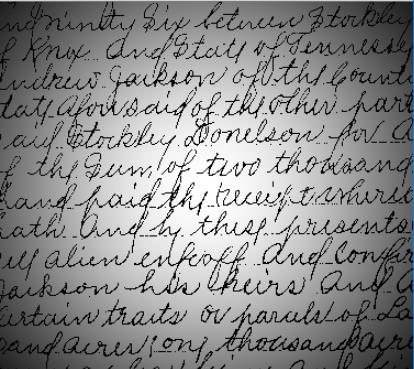 nd ninety Six between Stockley
f Knox And State of Tennessee
Andrew Jackson of the Count
tate aforesaid of the other part
said Stockley Donelson for a
f the Sum, of two thousand
hand paid the receipt wherso
hath And by these presents
ell alien enfeoff And Confir
Jackson his heirs And a
certain traits or parals of La
sand acres, one thousand acre